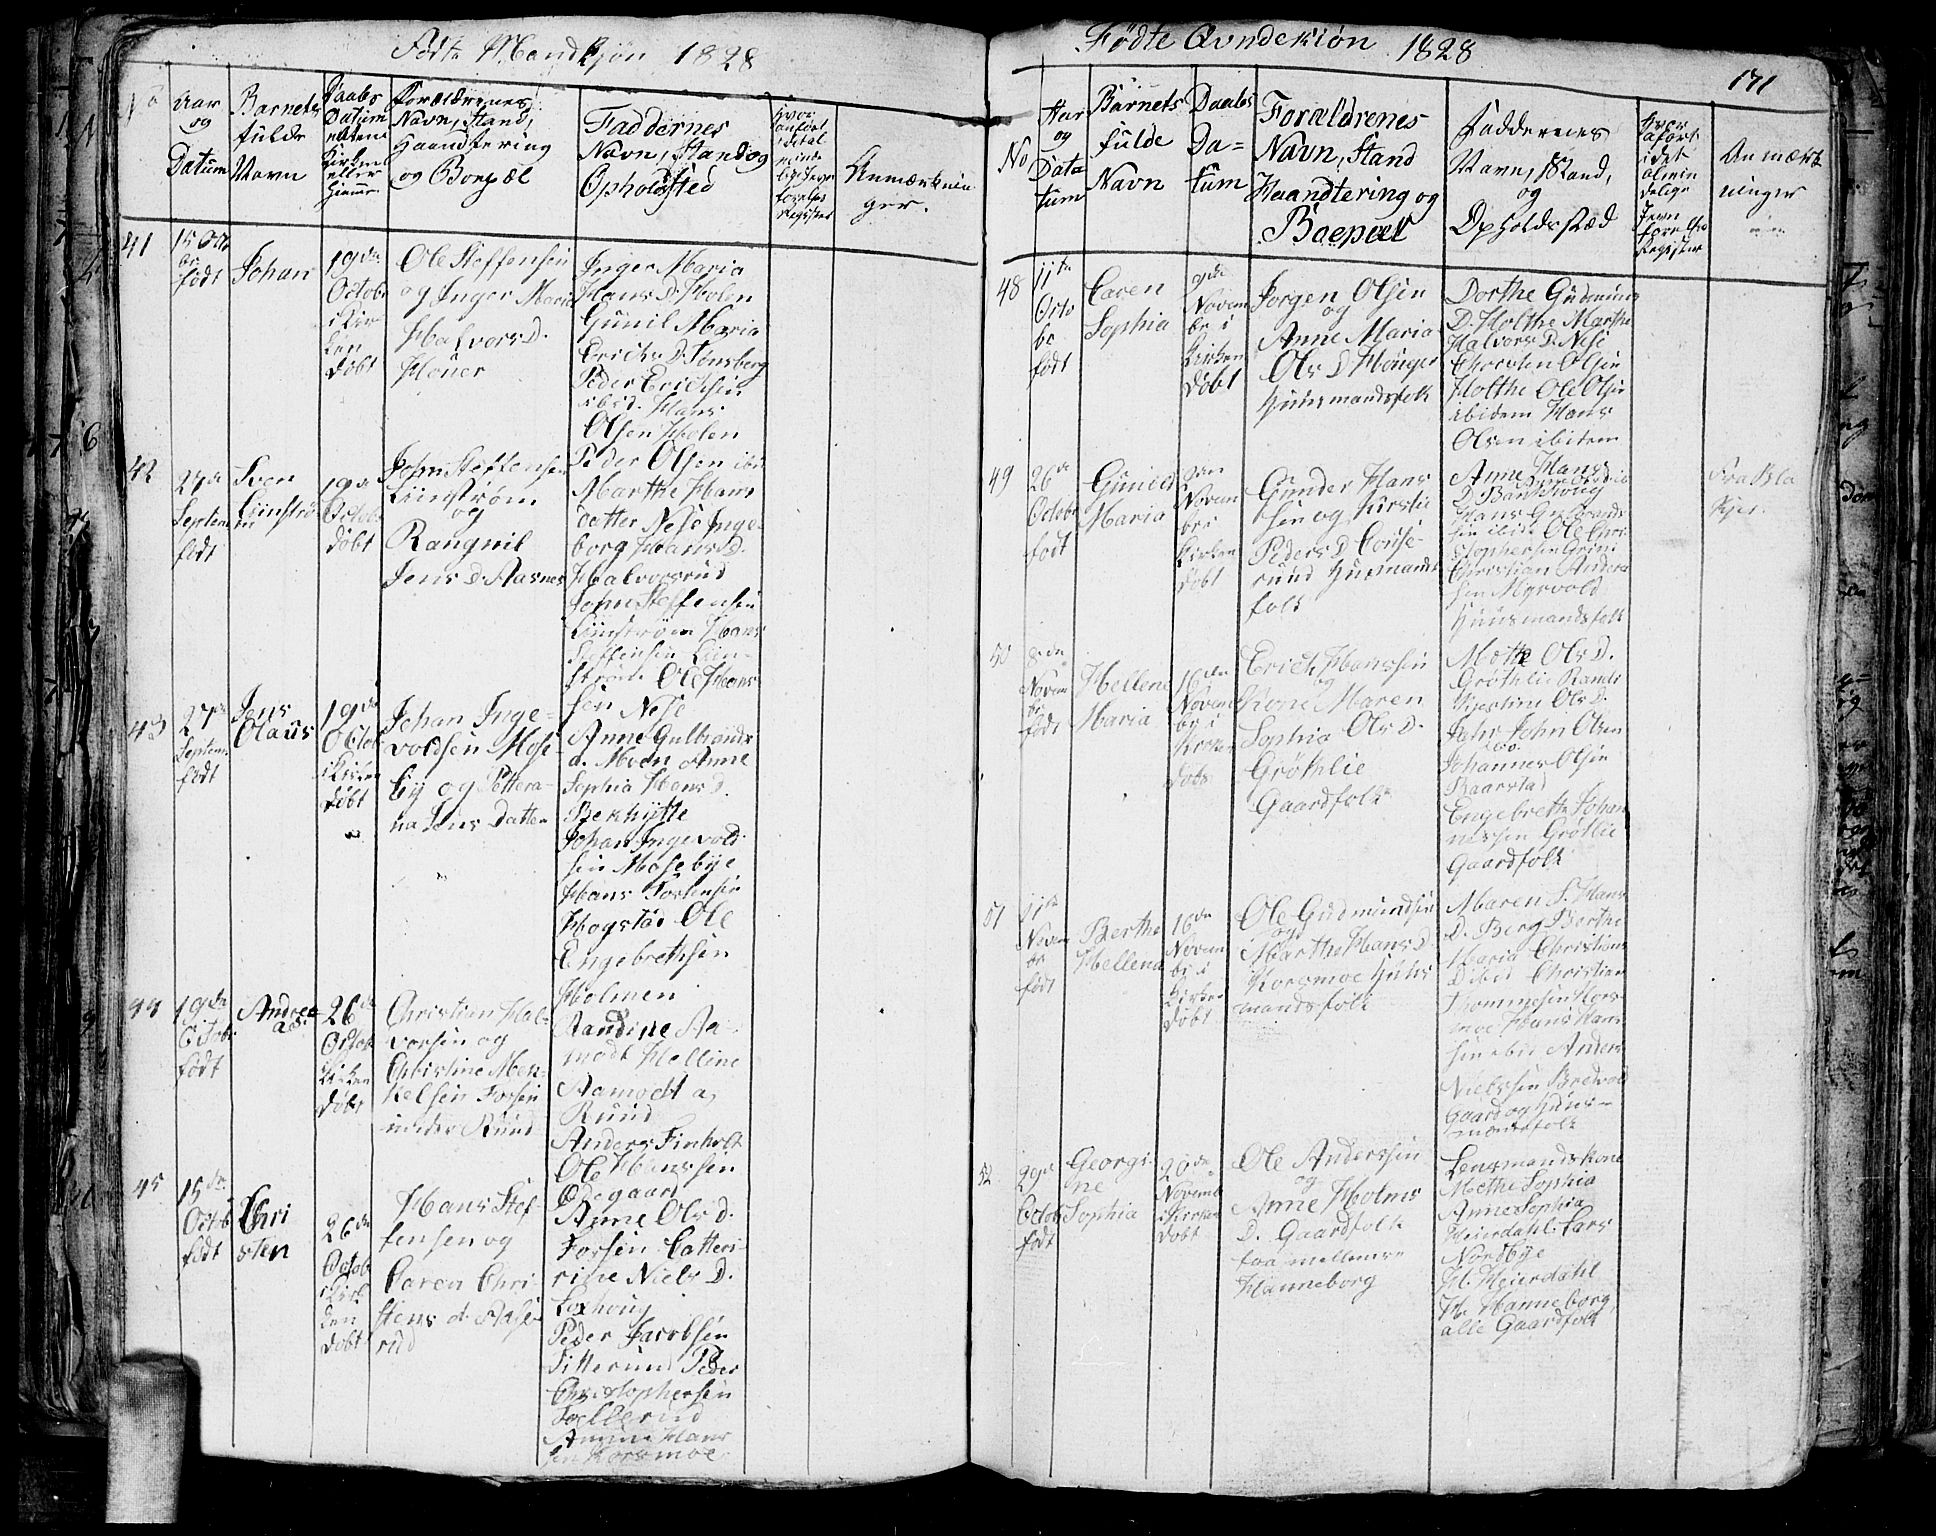 Født Mandkjøn 1828
No
Aar
og
Datum
Barnets
fulde
Navn
Daabs
Datum
enten i
Kirken
eller
hiemme
Forældrenes
Navn, Stand,
Haandtering
og Bopæl
Faddernes
Navn, Stand og
Opholdsted
Anmærknin
ger.
41
15 Octo
br
født
Johan
19de
Octobr
i Kir
ken
døbt
Ole Steffensen
og Inger Maria
Halvors D.
Houer
Inger Maria
Hans D. Holen
Gunil Maria
Erichs D. Tonsberg
Peder Erichsen
ibid. Hans
Olsen Holen
Peder Olsen ibid
42
27de
Septem
født
Sven
Liinströ
m
19de
Octobr
døbt
John Steffensen
Liinstrøm
og
Rangnil
Jens D. Aasnes
Marthe Hans
datter Nese Inge-
borg Hans D.
Halvorsrud
John Steffensen
Liinstrøm Hans
Steffensen Liin-
strøm Ole Hans
sen Nese
43
27de
Septem
født
Jens
Olaus
19de
Octob
i Kirken
døbt
Johan Inge-
voldsen Mose-
by og Pettera-
na Jens Datter
Anne Gulbrands
d. Moen Anne
Sophia Hans D.
Bekhytte
Johan Ingevold
sen Mosebye
Hans Torstensen
Hogstad Ole
Engebrethsen
Holmen
44
19de
Octobr
født
Andrea
as.
26de
Octob
i Kirken
døbt
Christian Hal-
vorsen og
Christine Mik-
kelsen Forsen
under Ruud
Randine Aa-
modt Helline
Aamodt a,
Ruud
Anders Finholt
Ole Hanssen
Ødegaard
45
15de
Octob
født
Chri
sten
26de
Octob
i Kirk
ken
døbt
Hans Stef
fensen og
Caren Chri
stens d. Aase
rud
Anne Ols d.
Forsen Cathri-
rine Niels D.
Loxhoug
Peder Jacobsen
Titterud Peder
Christophersen
Tollerud
Hans
sen Korsmoe
Fødte Qvindekiøn 1828
171
No
Aar
og
Data
tum
Barnets
fulde
Navn
Daabs
Da-
tum
Forældrenes
Navn, Stand
Haandtering og
Boepæl
Faddernes
Navn, Stand,
og
Opholdsstæd
Anmærk
ninger
48
11te
Octo
br
født
Caren
Sophia
Novem
br i
Kirken
døbt
Jørgen Olsen
og
Anne Maria
Ols D. Honger
Huusmandsfolk
Dorthe Gudmuns
D. Holthe Marthe
Halvors D. Nese
Thorsten Olsen
Holthe Ole Olsen
ibidem Hans
Olsen ibidem
49
26de
Octobr
født
Gunild
Maria
Novem
ber
Kirken
døbt
Gunder Hans
sen og Kirstie
Peders D. Conse-
ruud Husmands
folk
Anne Hans
Hans Gulbrands
sen ibid. Ole Chri
stophersen Grini
Christian Anders
sen Myrvold
Huusmandsfolk
Fra Bla
kjer.
50
8de
Novem
br
født
Hellene
Maria
16de
Novem
br i
Kirken
døbt
Erich Hanssen
og
Kone Maren
Sophia Ols D.
Grøthlie
Gaardfolk
Mothe Ols D.
Grøthlie Randi
Kjerstine Ols D.
John Olsen
Johannes Olsen
Baarstad
Engebreth Johan
nessen Grøtlie
Gaardfolk
51
11te
Novem
br
født
Berthe
Hellena
16de
Novem
br i
Kirken
døbt
Ole Gudmundsen
og
Marthe Hans D.
Korsmoe Huus
mandsfolk
Maren S. Hans
D. Berg Berthe
Maria Christians
D. ibid Christian
Thommesen Kors-
moe Hans Hans
sen ibid Anders
Nielssen Bredvold
Gaard og Huus-
mandsfolk
52
29de
Octob
født
Georgi-
ne
Sophia
20de
Novemb
i Kirken
døbt
Ole Anderssen
og
Anne Holms
D. Gaardfolk
paa mellem
Hanneborg
Lensmandskone
Methe Sophia
Anne Sophia
Heierdahl Lars
Nordbye
H. Heierdahl
H. Hanneborg,
alle Gaardfolk